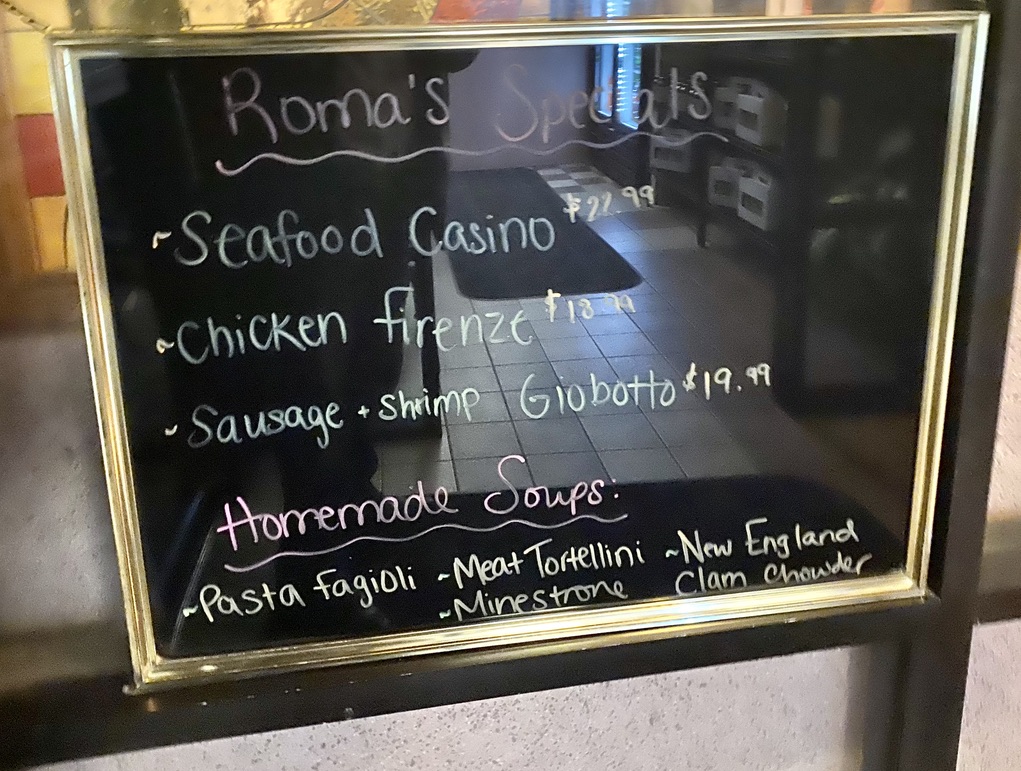 Roma's Specials
~Seafood Casino $22.99
~Chicken firenze $18.99
~Sausage + Shrimp Giobotto $19.99
Homemade Soups:
~Pasta fagioli ~Meat Tortellini ~New England
~Minestrone Clam Chowder